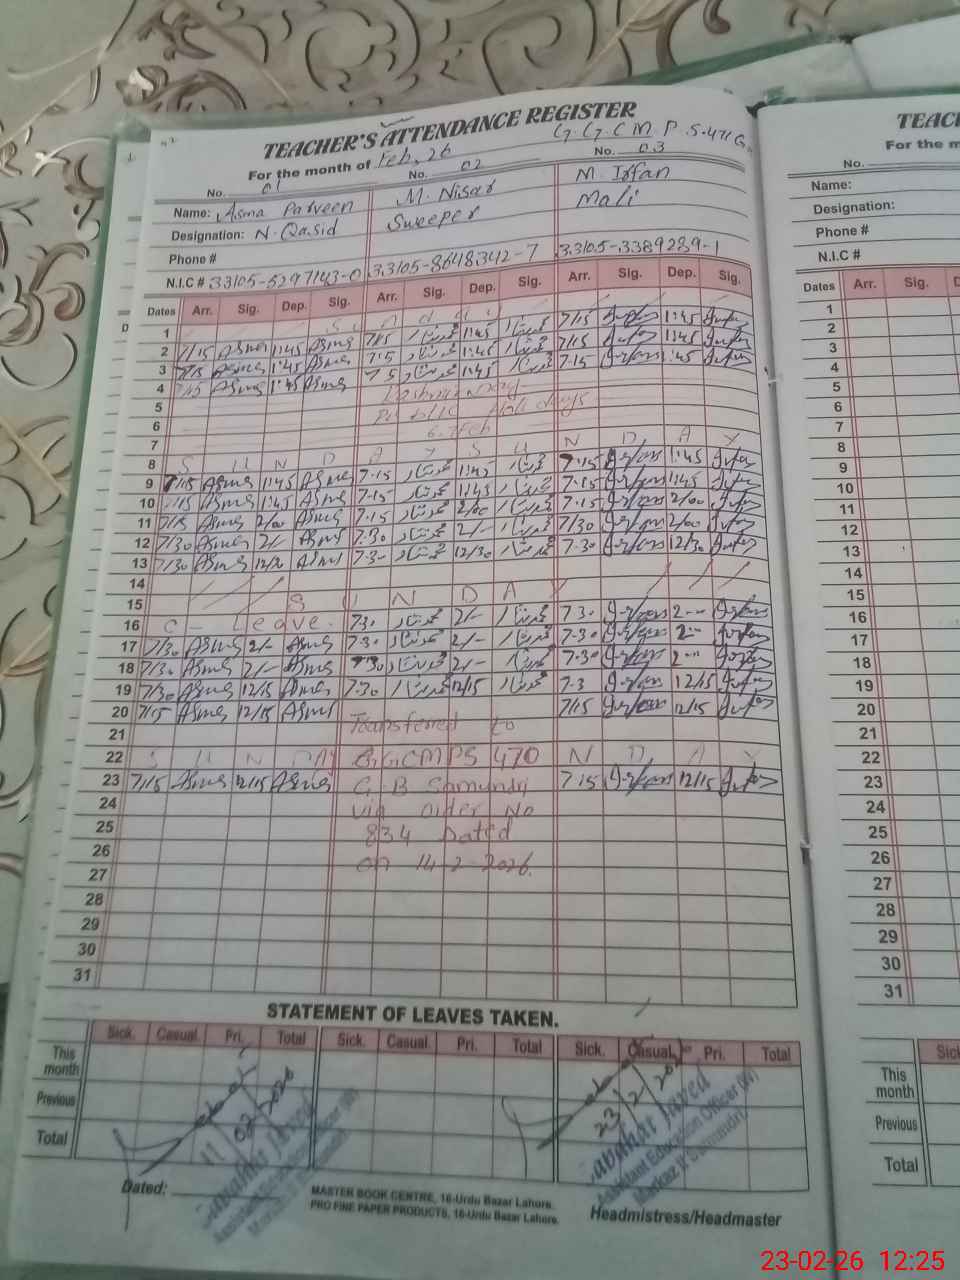 TEACHER'S ATTENDANCE REGISTER
G.G.C.M.P.S.471 G.
For the month of Feb, 26
No. 01 No. 02 No. 03
Name: Asma Parveen M. Nisar M. Irfan
Designation: N. Qasid Sweeper Mali
Phone #
N.I.C # 33105-5297143-0 33105-8648342-7 33105-3389289-1
Dates Arr. Sig. Dep. Sig. Arr. Sig. Dep. Sig. Arr. Sig. Dep. Sig.
1 S u n d a y
2 7/15 Asma 1:45 Asma 7:15 محمد نثار 1:45 محمد نثار 7/15 Irfan 1:45 Irfan
3 7/15 Asma 1:45 Asma 7:15 محمد نثار 1:45 محمد نثار 7/15 Irfan 1:45 Irfan
4 7/15 Asma 1:45 Asma 7:15 محمد نثار 1:45 محمد نثار 7-15 Irfan 1:45 Irfan
5 Kashmir Day
6 Public Holidays
7 6.7 Feb
8 S U N D A Y S U N D A Y
9 7/15 Asma 1:45 Asma 7-15 محمد نثار 1:45 محمد نثار 7-15 Irfan 1:45 Irfan
10 7/15 Asma 1:45 Asma 7-15 محمد نثار 1:45 محمد نثار 7-15 Irfan 1:45 Irfan
11 7/15 Asma 2/00 Asma 7-15 محمد نثار 2/00 محمد نثار 7-15 Irfan 2/00 Irfan
12 7/30 Asma 2/- Asma 7-30 محمد نثار 2/- محمد نثار 7/30 Irfan 2/00 Irfan
13 7/30 Asma 12/30 Asma 7-30 محمد نثار 12/30 محمد نثار 7-30 Irfan 12/30 Irfan
14
15 S U N D A Y
16 C - Leave. 7:30 محمد نثار 2/- محمد نثار 7-30 Irfan 2-00 Irfan
17 7/30 Asma 2/- Asma 7-30 محمد نثار 2/- محمد نثار 7-30 Irfan 2-00 Irfan
18 7/30 Asma 2/- Asma 7-30 محمد نثار 2/- محمد نثار 7-30 Irfan 2-00 Irfan
19 7/30 Asma 12/15 Asma 7-30 محمد نثار 12/15 محمد نثار 7-3 Irfan 12/15 Irfan
20 7/15 Asma 12/15 Asma Transferred to 7/15 Irfan 12/15 Irfan
21
22 S U N D A Y GGCMPS 470 N D A Y
23 7/15 Asma 12/15 Asma G-B Samundri 7-15 Irfan 12/15 Irfan
24 via order No
25 834 Dated
26 on 14-2-2026.
27
28
29
30
31
STATEMENT OF LEAVES TAKEN.
Sick. Casual. Pri. Total Sick. Casual. Pri. Total Sick. Casual. Pri. Total
This month
Previous
Total
11 02 2026
23/2/202
Javahar Javed
Assistant Education Officer (W)
Dated:
MASTER BOOK CENTRE, 16-Urdu Bazar Lahore.
PRO FINE PAPER PRODUCTS, 16-Urdu Bazar Lahore.
Headmistress/Headmaster
TEAC
For the m
No.
Name:
Designation:
Phone #
N.I.C #
Dates Arr. Sig. D
1
2
3
4
5
6
7
8
9
10
11
12
13
14
15
16
17
18
19
20
21
22
23
24
25
26
27
28
29
30
31
Sic
This month
Previous
Total
23-02-26 12:25